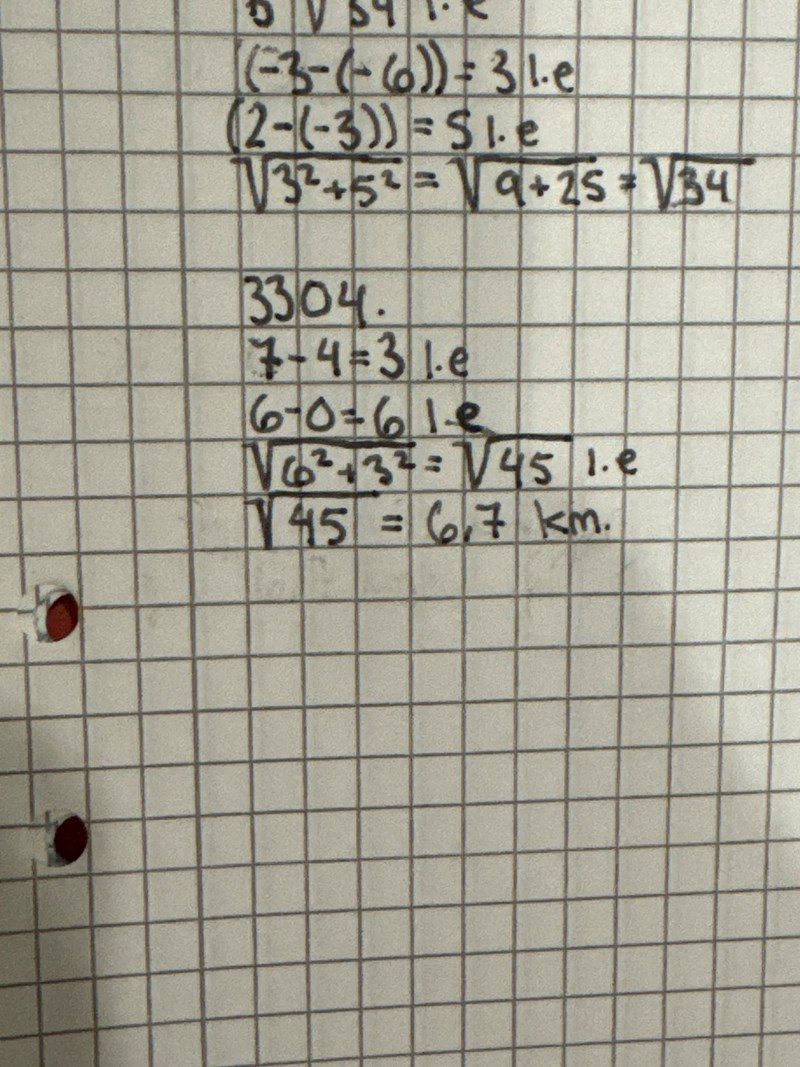 b √34 l.e
(-3-(-6)) = 3 l.e
(2-(-3)) = 5 l.e
√3²+5² = √9+25 = √34
3304.
7-4=3 l.e
6-0=6 l.e
√6²+3² = √45 l.e
√45 = 6,7 km.